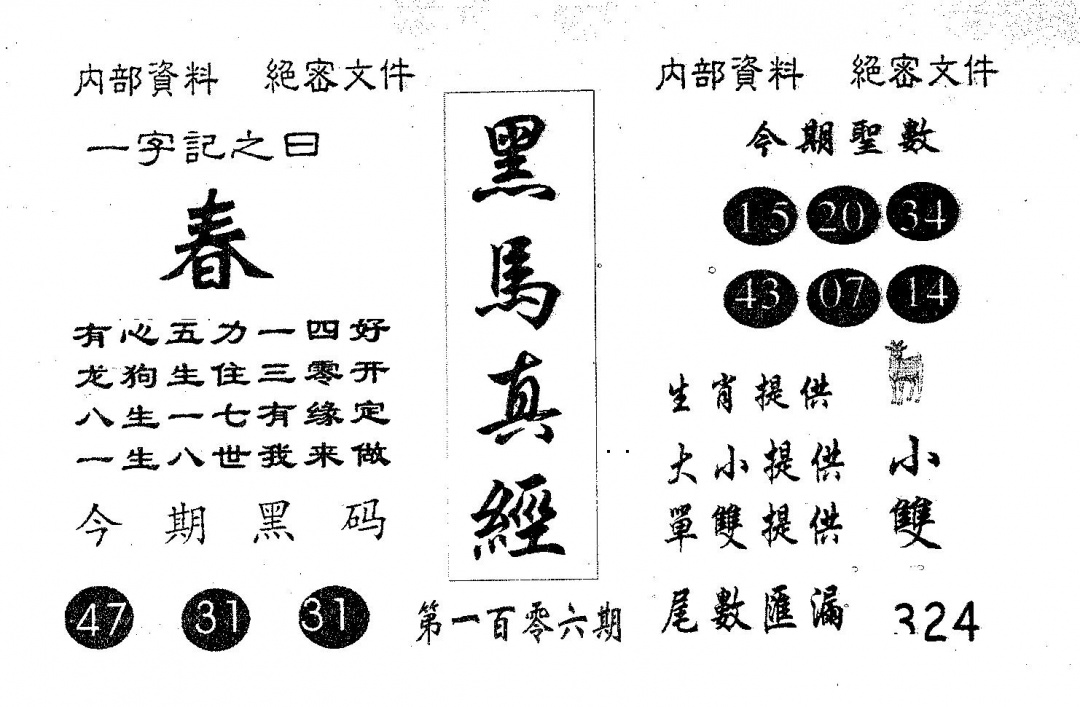 内部資料 絕密文件
一字記之曰
春
有心五力一四好
龙狗生住三零开
八生一七有缘定
一生八世我来做
今期黑码
47 31 31
黑馬真經
第一百零六期
内部資料 絕密文件
今期聖數
15 20 34
43 07 14
生肖提供
大小提供 小
單雙提供 雙
尾數匯漏 324